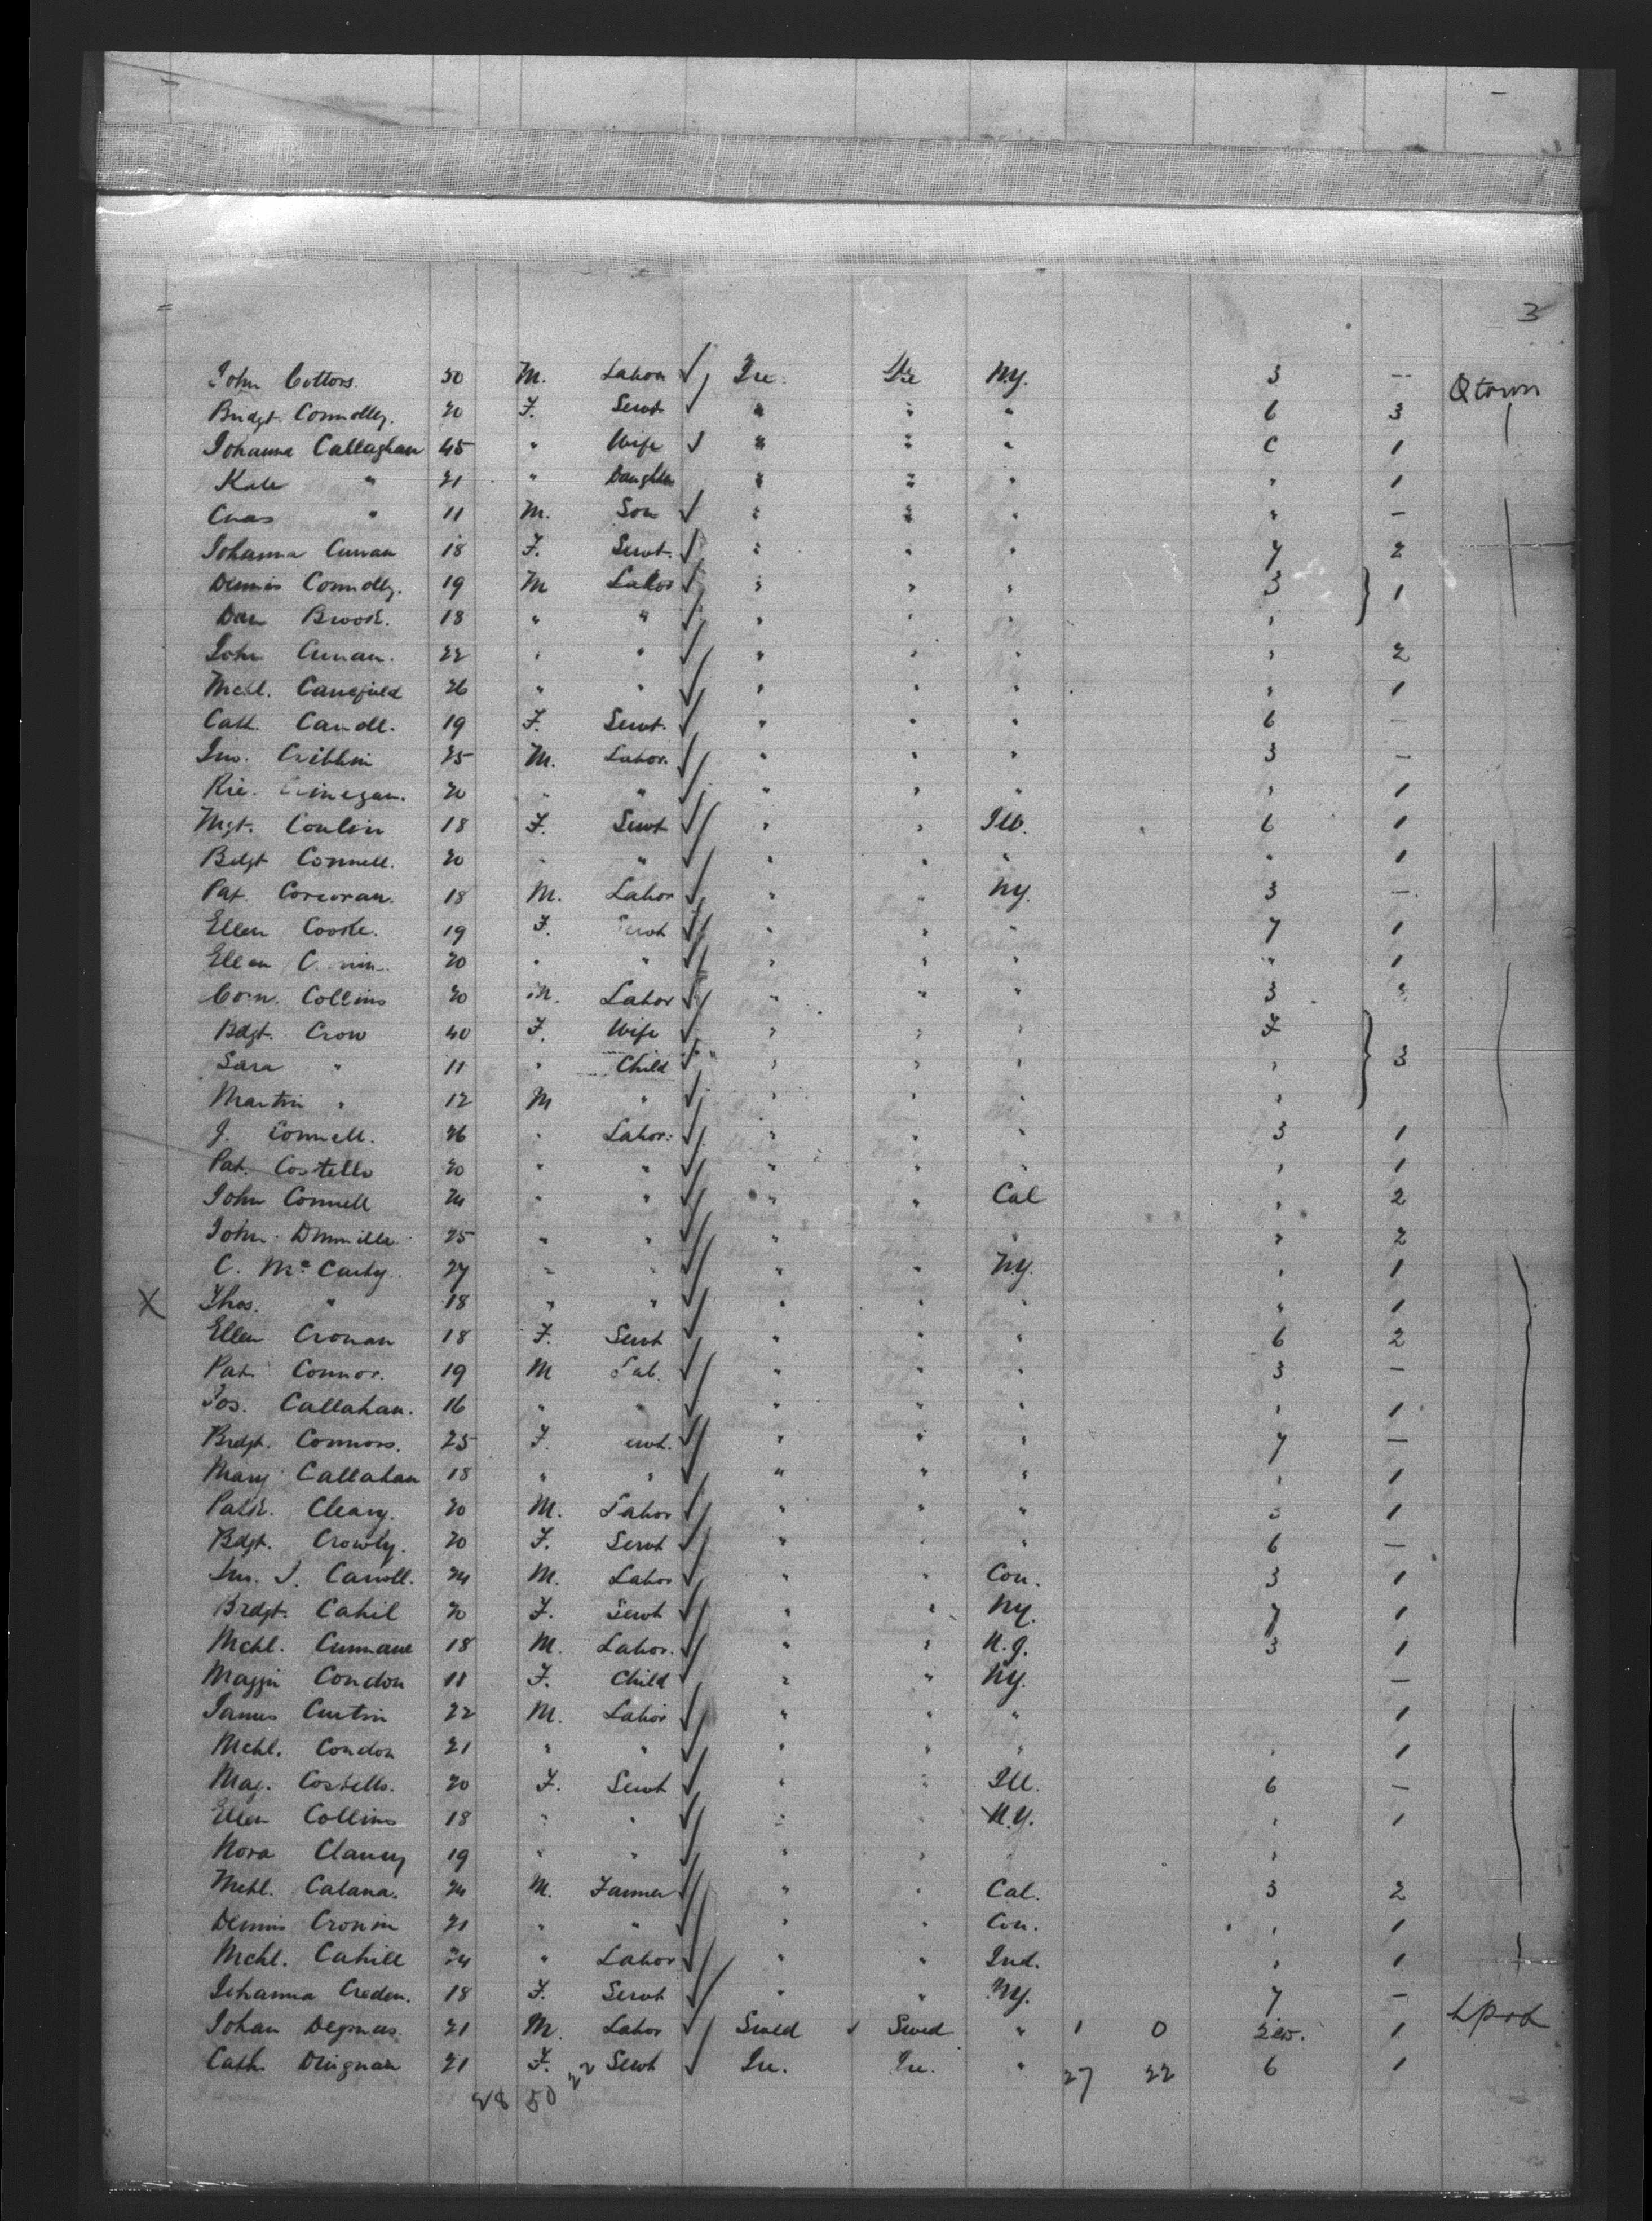 3
John Cottors. 50 M. Labor Ire. Ire N.Y. 3 -- Qtown
Bridgt. Connolly. 20 F. Servt " " " 6 3
Johanna Callaghan 45 " Wife " " " C 1
Kate " 21 " Daughter " " " " 1
Chas " 11 M. Son " " " " —
Johanna Cunan 18 F. Servt. " " " 7 2
Dennis Connolly. 19 M Labor " " " 3 1
Dan Brook. 18 " " " " " "
John Cunan. 22 " " " " " " 2
Mchl. Canefield 26 " " " " " " 1
Cath. Caroll. 19 F. Servt. " " " 6 —
Jno. Cribbin 25 M. Labor. " " " 3 —
Ric. 20 " " " " " " 1
Mgt. Conlin 18 F. Servt " " Ill. 6 1
Bdgt Connell. 20 " " " " " " 1
Pat. Corcoran. 18 M. Labor " " N.Y. 3 —
Ellen Cooke. 19 F. Servt " " " 7 1
Ellen 20 " " " " " " 1
Corn. Collins 20 M. Labor " " " 3
Bdgt. Crow 40 F. Wife " " " F
Sara " 11 " Child " " " " 3
Martin " 12 M " " " " "
J. Connell. 26 " Labor. " " " 3 1
Pat. Costello 20 " " " " " " 1
John Connell 24 " " " " Cal " 2
John 25 " " " " " " 2
C. McCarty. 27 " " " " N.Y. " 1
X Thos. " 18 " " " " " " 1
Ellen Cronan 18 F. Servt " " " 6 2
Pat. Connor. 19 M Lab. " " " 3 —
Jos. Callahan. 16 " " " " " " 1
Brdgt. Connors. 25 F. Servt. " " " 7 —
Mary Callahan 18 " " " " " " 1
Patk. Cleary. 20 M. Labor " " " 3 1
Bdgt. Crowly. 20 F. Servt " " " 6 —
Jno. J. Carroll. 24 M. Labor " " Con. 3 1
Brdgt. Cahil 20 F. Servt " " N.Y. 7 1
Mchl. Cunnane 18 M. Labor. " " N.J. 3 1
Maggie Condon 11 F. Child " " N.Y. —
James Curtin 22 M. Labor " " " 1
Mchl. Condon 21 " " " " " " 1
Mag. Costello. 20 F. Servt " " Ill. 6 —
Ellen Collins 18 " " " " N.Y. " 1
Nora Clancy 19 " " " " " "
Mchl. Calana. 24 M. Farmer " " Cal. 3 2
Dennis Cronin 21 " " " " Con. " 1
Mchl. Cahill 24 " Labor " " Ind. " 1
Johanna Creden. 18 F. Servt " " N.Y. 7 —
Johan 21 M. Labor Swed Swed " 1 0 1 Lpool
Cath. Duignan 21 F. 22 Servt Ire. Ire. " 27 22 6 1
28 50